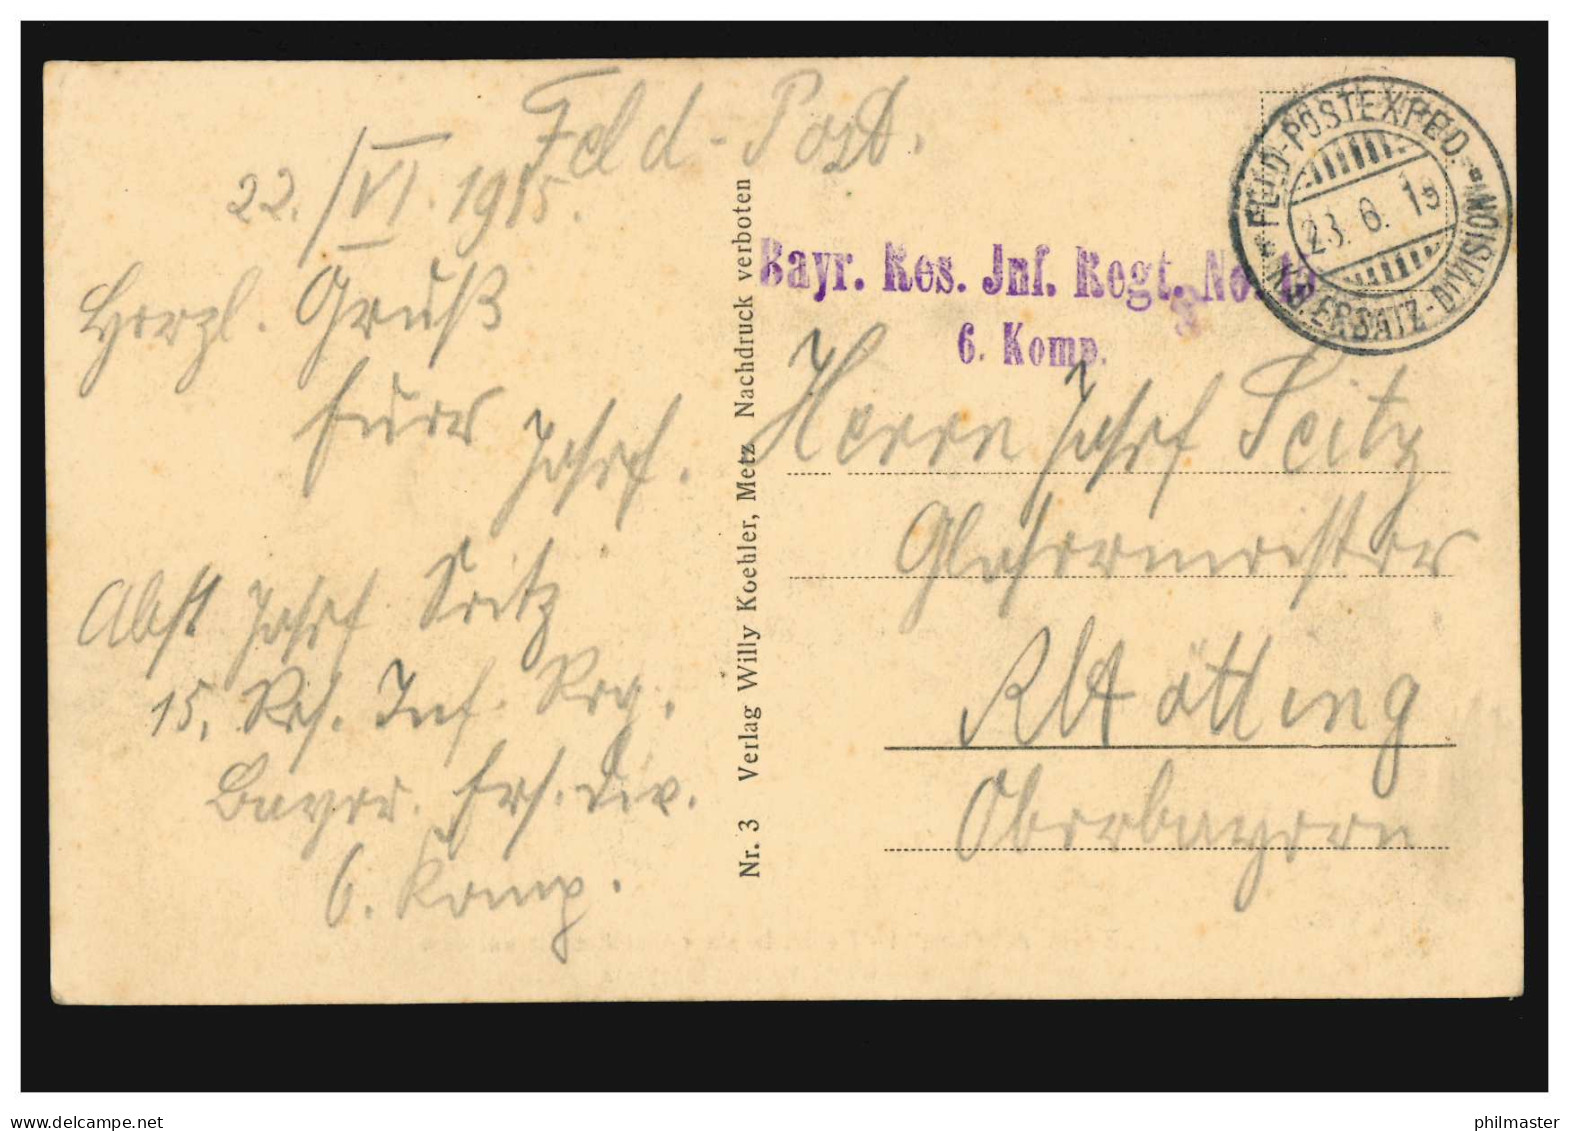 Feld-Post.
22./VI. 1915.
Herzl. Gruß
Euer
Josef.
Abst Josef Seitz
15. Res. Inf. Reg.
Bayer. Ers. Div.
6. Komp.
Nr. 3 Verlag Willy Koehler, Metz Nachdruck verboten
FELD-POSTEXPED.
23. 6. 15
K.B. ERSATZ-DIVISION
Bayr. Res. Inf. Regt. No. 15
6. Komp.
Herrn Josef Seitz
Glasermeister
Altötting
Oberbayern
www.delcampe.net
philmaster